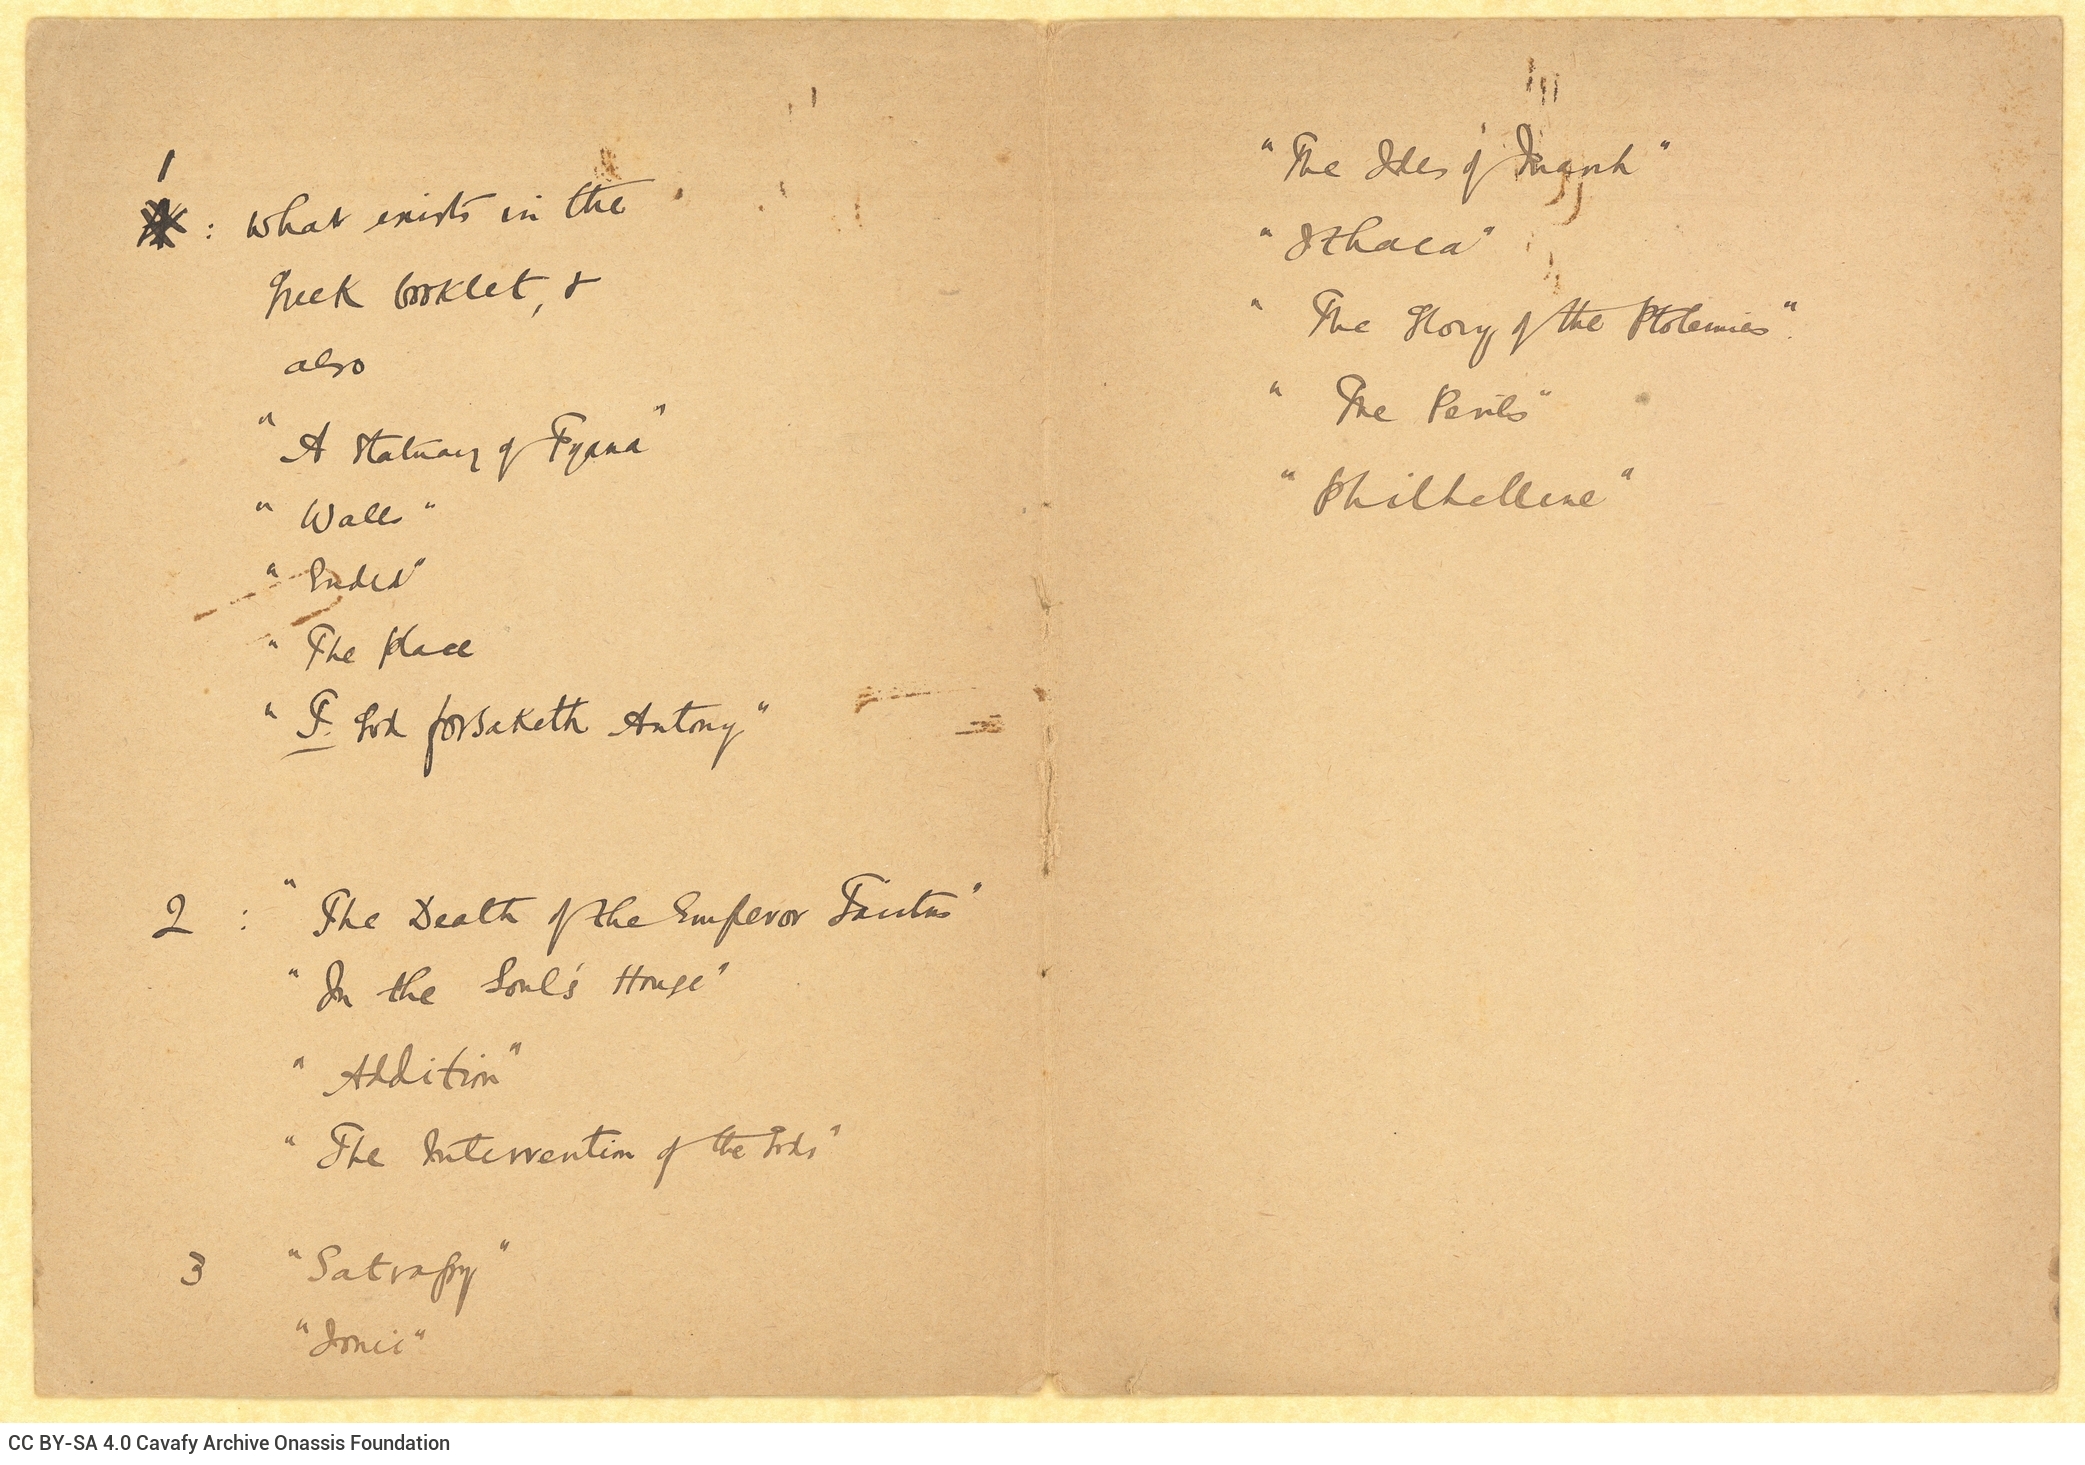 1
: What exists in the
Greek booklet, &
also
"A Statuary of Tyana"
"Walls"
"Ended"
"The Place
"T. God forsaketh Antony"
2 : "The Death of the Emperor Tacitus"
"In the Soul's House"
"Addition"
"The Intervention of the Gods"
3 "Satrapy"
"Ionic"
"The Ides of March"
"Ithaca"
"The Glory of the Ptolemies".
"The Perils"
"Philhellene"
CC BY-SA 4.0 Cavafy Archive Onassis Foundation